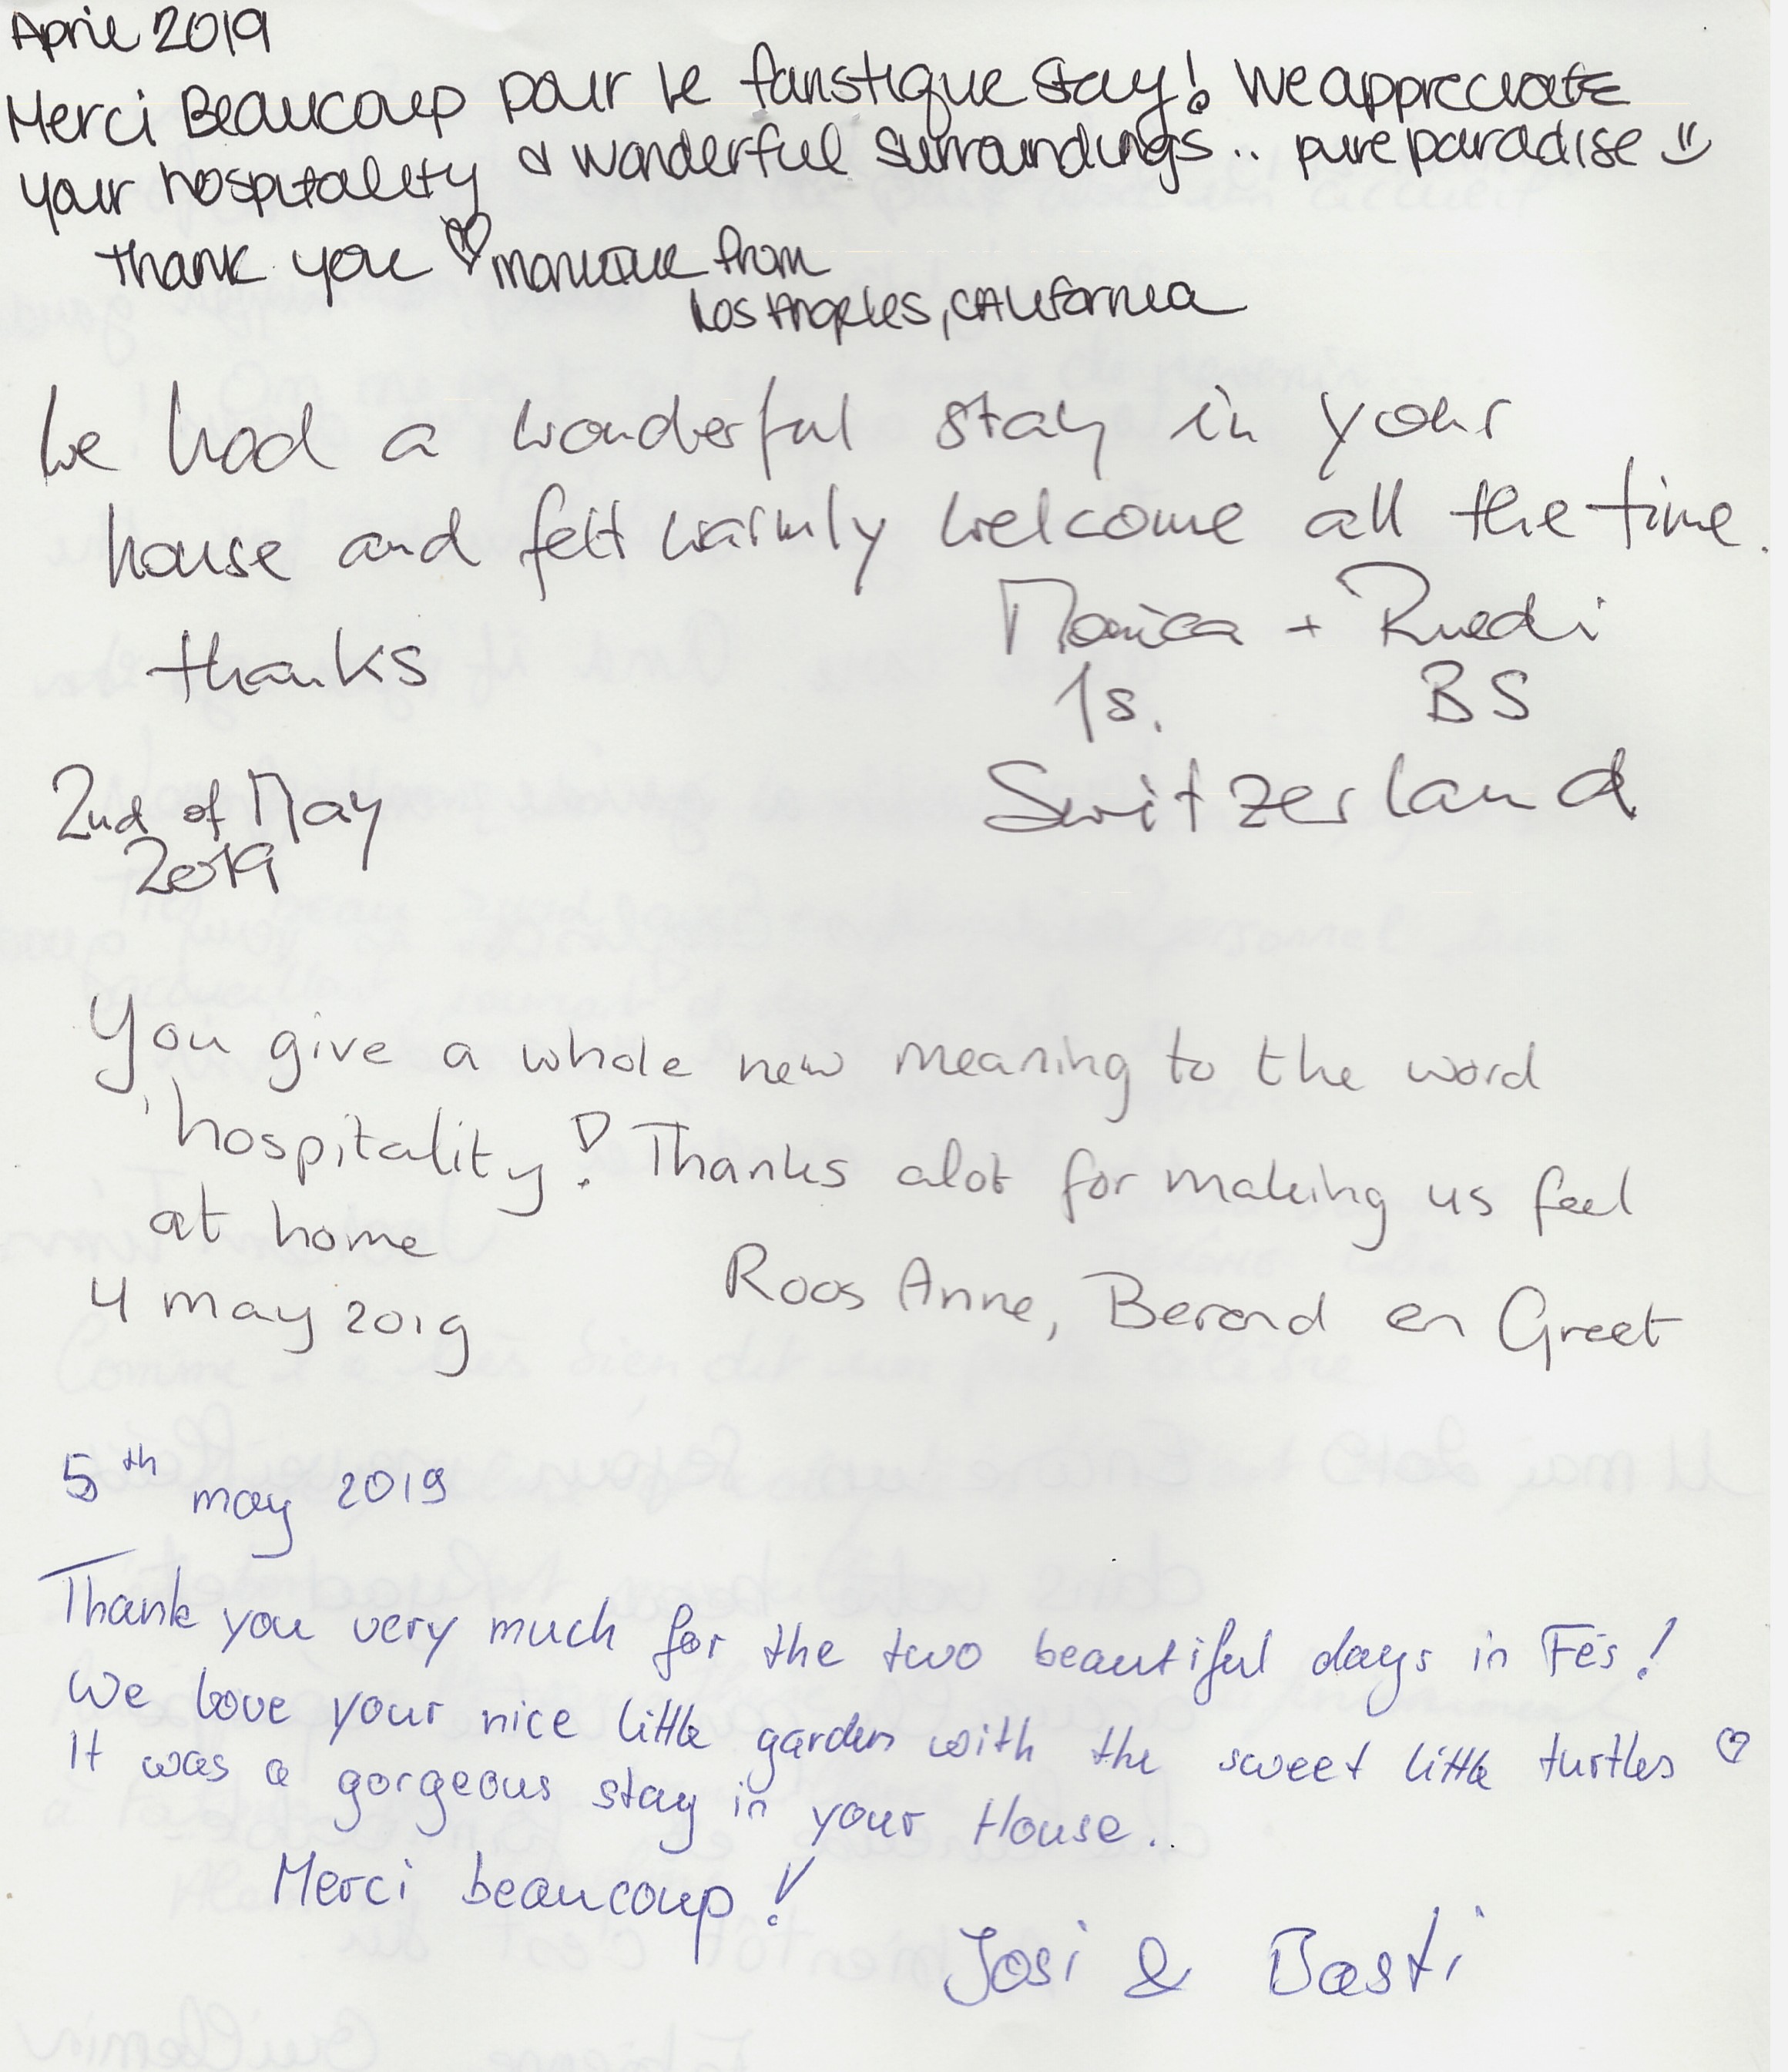 April 2019
Merci Beaucoup pour le fanstique stay! We appreciate
your hospitality & wonderful surroundings.. pure paradise
thank you ♡ from
Los Angeles, California
We had a wonderful stay in your
house and felt warmly welcome all the time.
thanks
Monica + Ruedi
BS
Switzerland
2nd of May
2019
You give a whole new meaning to the word
'hospitality! Thanks alot for making us feel
at home
4 may 2019
Roos Anne, Berend en Greet
5th may 2019
Thank you very much for the two beautiful days in Fés!
We love your nice little garden with the sweet little turtles ♡
It was a gorgeous stay in your House..
Merci beaucoup!
Josi & Basti